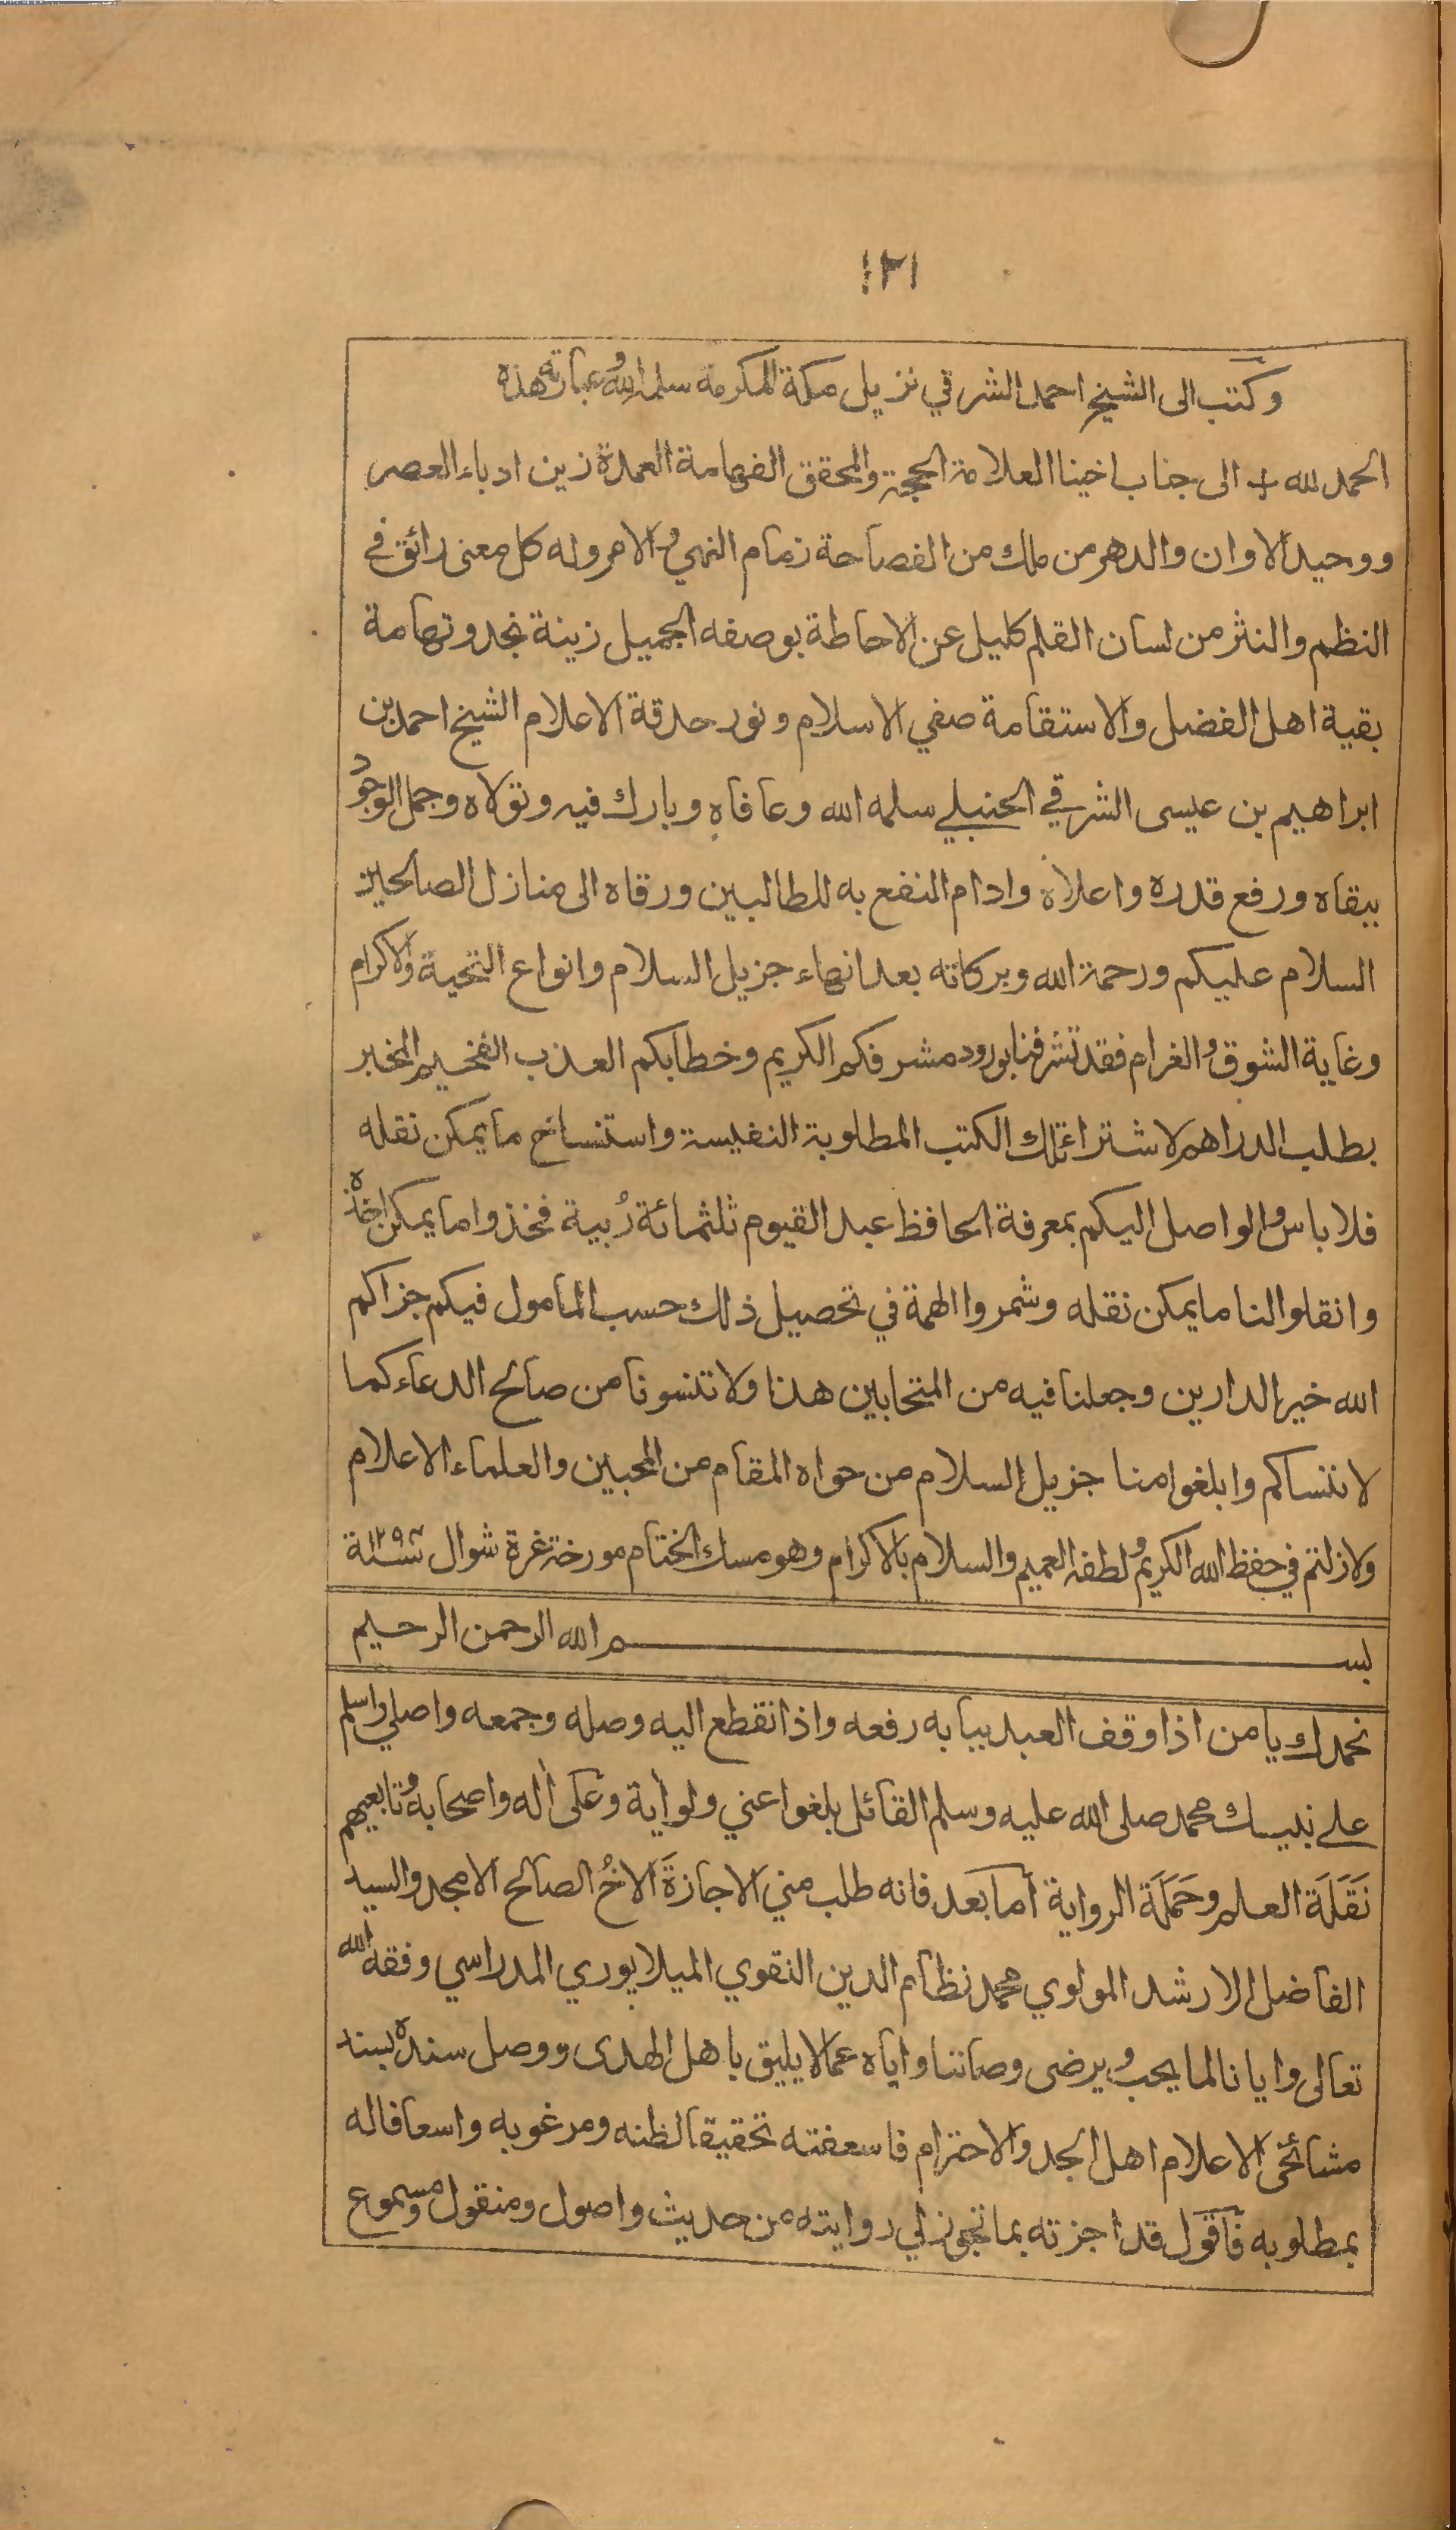 ١٢١
وكتب الى الشيخ احمد الشرقي نزيل مكة المكرمة سلمه الله وعبارته هذه
الحمد لله + الى جناب اخينا العلامة الحجة والمحقق الفهامة العمدة زين ادباء العصر
ووحيد الاوان والدهر من ملك من الفصاحة زمام النهي والامر وله كل معنى رائق في
النظم والنثر من لسان القلم كليل عن الاحاطة بوصفه الجميل زينة نجد وتهامة
بقية اهل الفضل والاستقامة صفي الاسلام ونور حدقة الاعلام الشيخ احمد بن
ابراهيم بن عيسى الشرقي الحنبلي سلمه الله وعافاه وبارك فيه وتولاه وجمل الوجود
ببقاه ورفع قدره واعلاه وادام النفع به للطالبين ورقاه الى منازل الصالحين
السلام عليكم ورحمة الله وبركاته بعد انهاء جزيل السلام وانواع التحية والاكرام
وغاية الشوق والغرام فقد تشرفنا بورود مشرفكم الكريم وخطابكم العذب الفخيم المخبر
بطلب الدراهم لاشتراء تلك الكتب المطلوبة النفيسة واستنساخ ما يمكن نقله
فلا باس والواصل اليكم بمعرفة الحافظ عبد القيوم ثلثمائة رُبية فخذوا ما يمكن اخذه
وانقلوا لنا ما يمكن نقله وشمروا الهمة في تحصيل ذلك حسب المأمول فيكم جزاكم
الله خير الدارين وجعلنا فيه من المتحابين هذا ولا تنسونا من صالح الدعاء كما
لا ننساكم وابلغوا منا جزيل السلام من حواه المقام من المحبين والعلماء الاعلام
ولا زلتم في حفظ الله الكريم ولطفه العميم والسلام بالاكرام وهو مسك الختام مورخة غرة شوال سنة
بسم الله الرحمن الرحيم
نحمدك يا من اذا وقف العبد ببابه رفعه واذا انقطع اليه وصله وجمعه واصلي واسلم
على نبيك محمد صلى الله عليه وسلم القائل بلغوا عني ولو أية وعلى أله واصحابه وتابعيهم
نَقَلَة العلم وحَمَلَة الرواية أما بعد فانه طلب مني الاجازةَ الاخُ الصالح الامجد والسيد
الفاضل الارشد المولوي محمد نظام الدين النقوي الميلابوري المدراسي وفقه الله
تعالى وايانا لما يحب ويرضى وصاننا واياه عما لا يليق باهل الهدى ووصل سنده بسند
مشائخى الاعلام اهل المجد والاحترام فاسعفته تحقيقا لظنه ومرغوبه واسعافا له
بمطلوبه فأقول قد اجزته بما تجوز لي روايته من حديث واصول ومنقول ومسموع